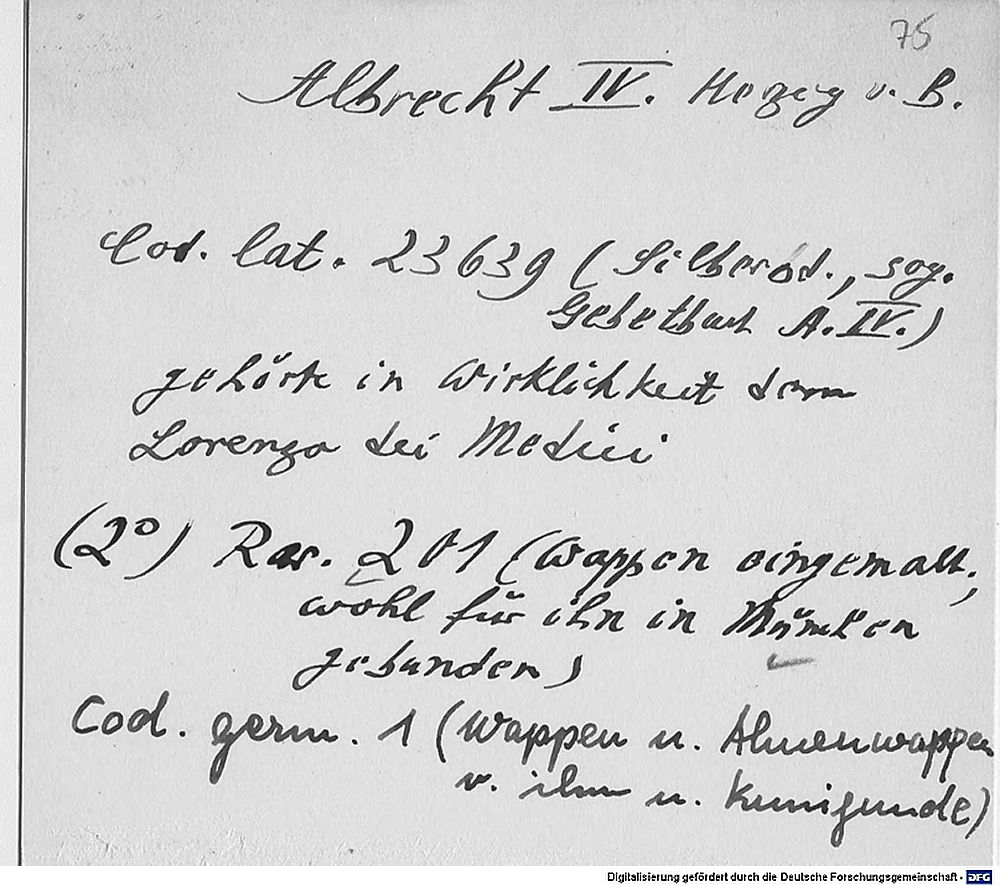 75
Albrecht IV. Herzog v. B.
Cod. lat. 23639 (Silberbd., sog.
Gebetbuch A. IV.)
gehörte in Wirklichkeit dem
Lorenzo dei Medici
(2°) Rar. 201 (Wappen eingemalt,
wohl für ihn in München
gebunden)
Cod. germ. 1 (Wappen u. Ahnenwappen
v. ihm u. Kunigunde)
Digitalisierung gefördert durch die Deutsche Forschungsgemeinschaft - DFG